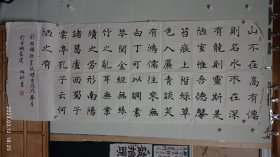 山不在高有僊
則名水不在深
有龍則靈斯是
陋室惟吾德馨
苔痕上階綠草
色入簾青談笑
有鴻儒往來無
白丁可以調素
琴閱金經無絲
竹之亂耳無案
牘之勞形南陽
諸葛廬西蜀子
雲亭孔子云何
陋之有
劉禹錫陋室銘